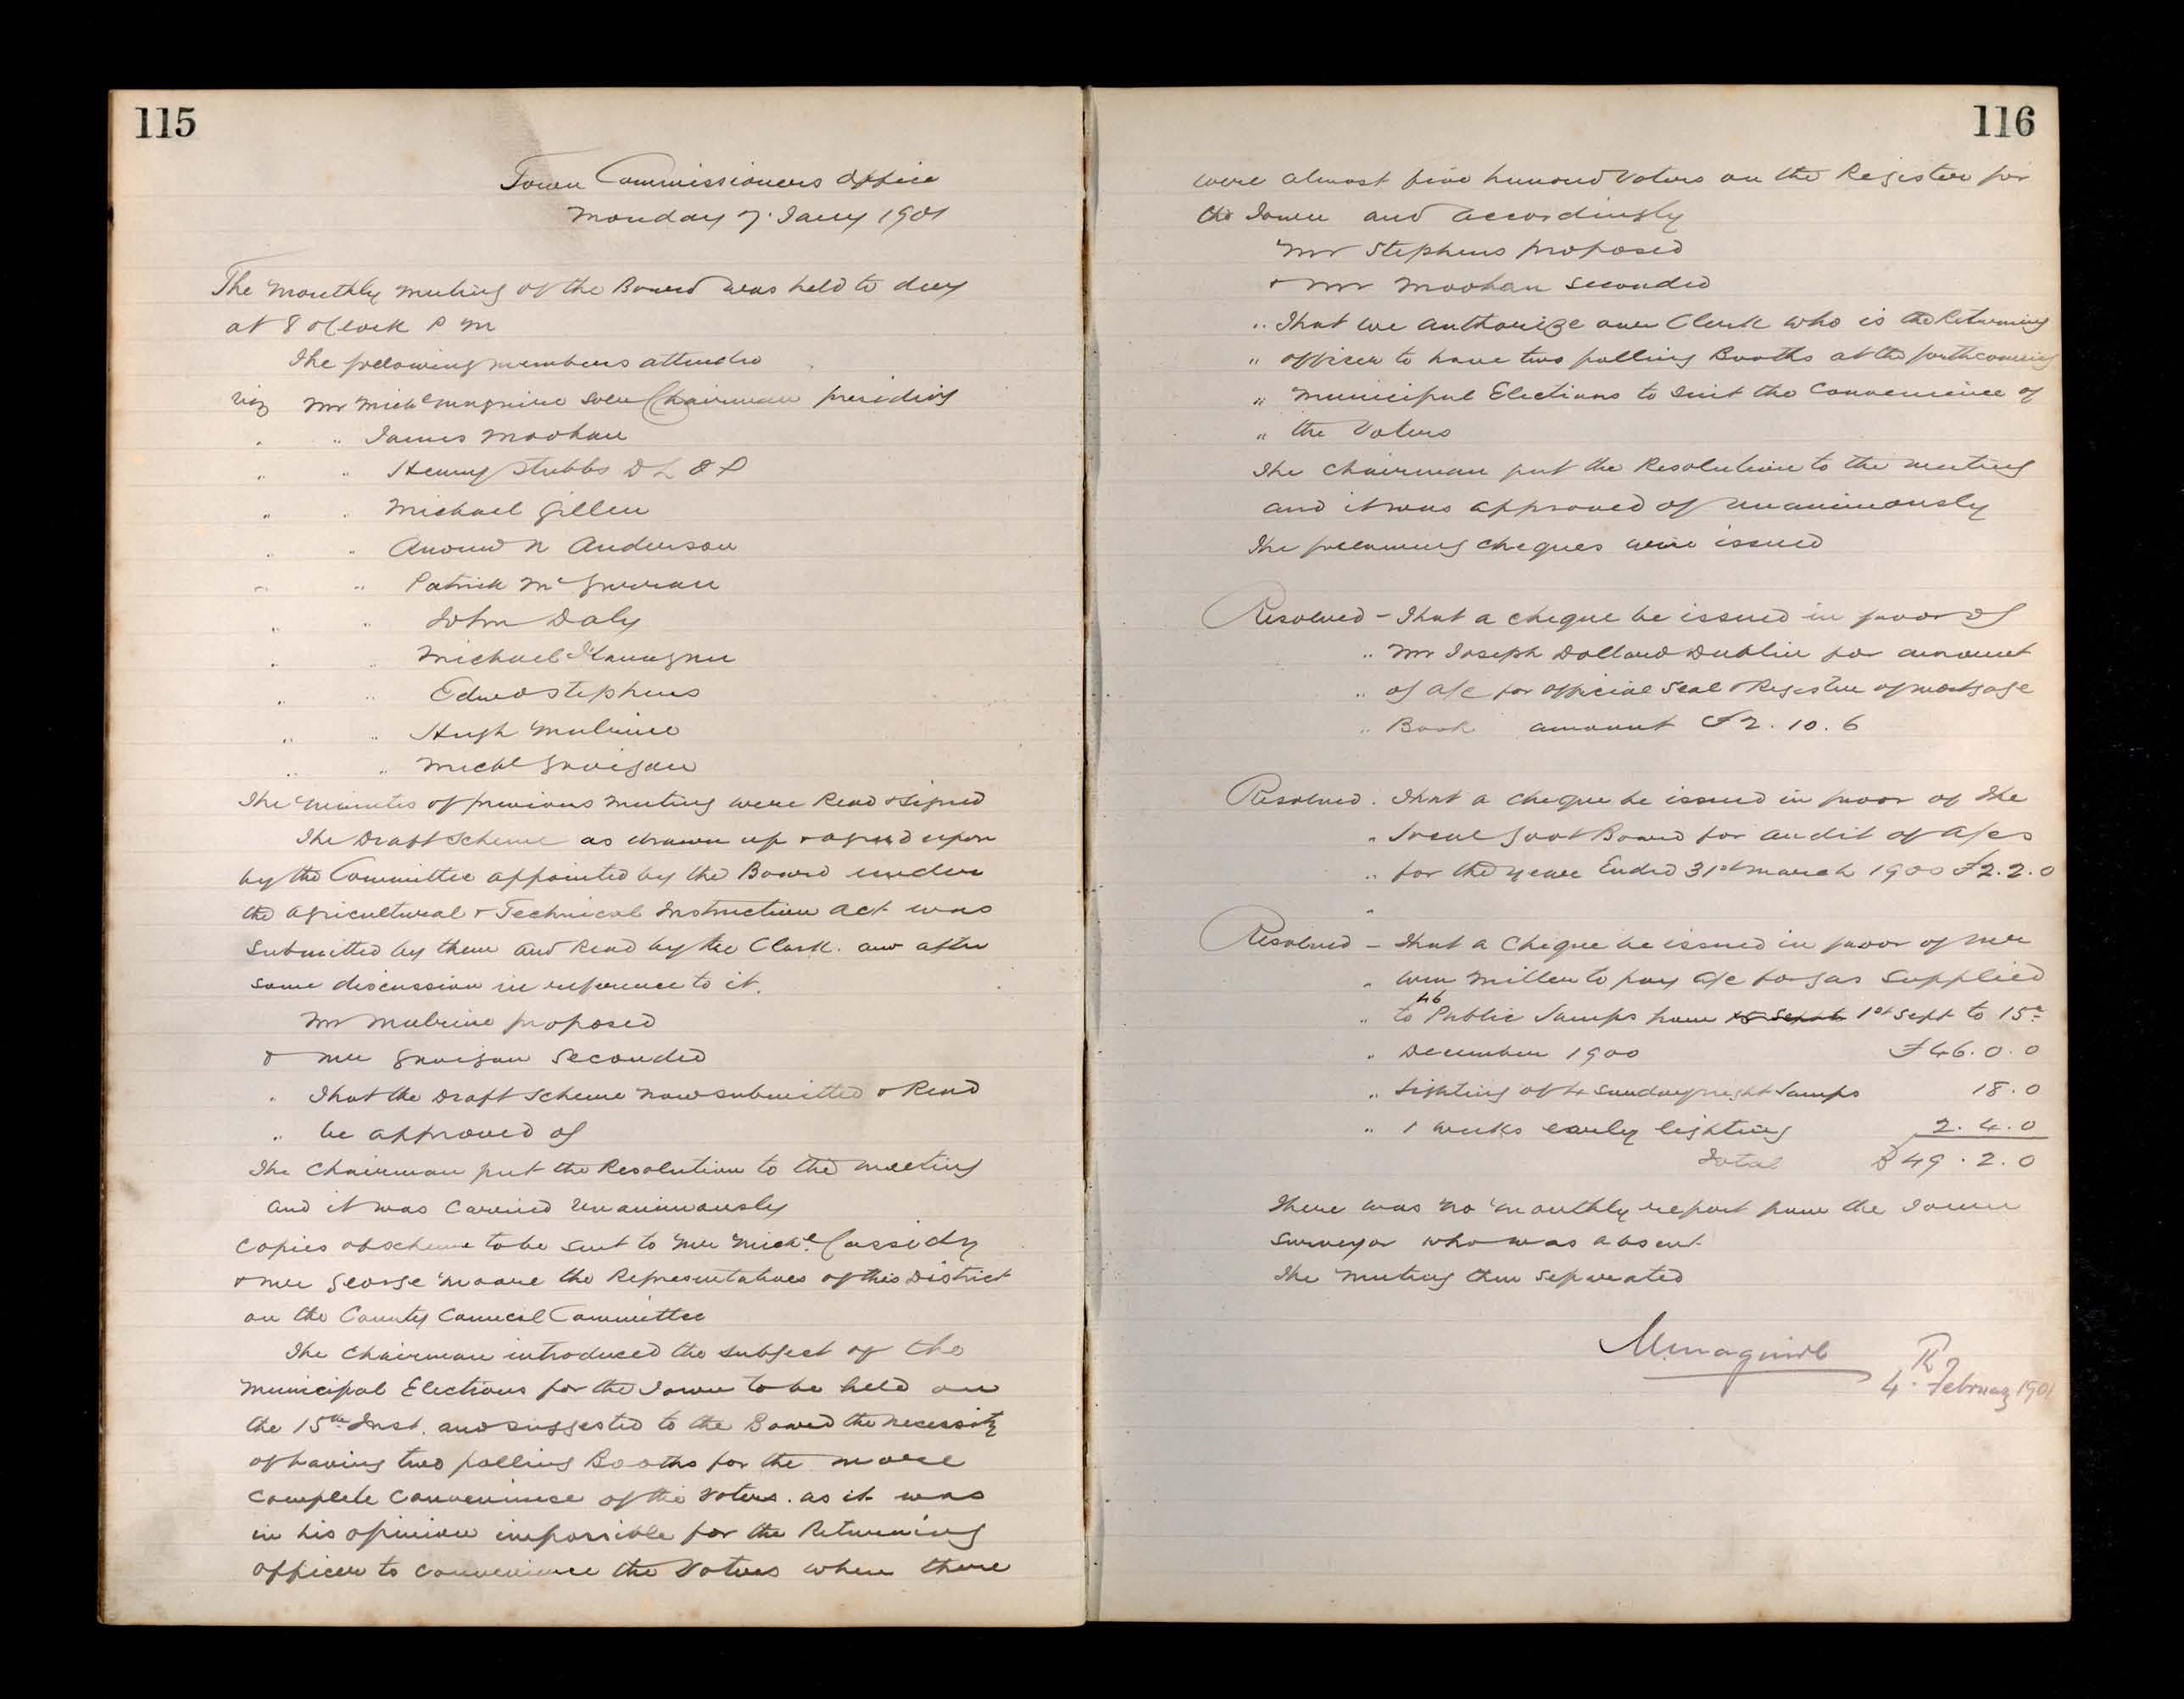 115
Town Commissioners Office
Monday 7. Jany 1901
The Monthly Meeting of the Board was held to day
at 8 oClock P M
The following members attended
viz Mr Michl Maguire Solr Chairman presiding
" " James Moohan
" " Henry Stubbs D L J P
" " Michael Gillen
" " Andrew N Anderson
" " Patrick McGurran
" " John Daly
" " Michael Flanagan
" " Edwd Stephens
" " Hugh Mulrine
" " Michl Gavigan
The Minutes of previous Meeting were Read & Signed
The Draft Scheme as drawn up & agreed upon
by the Committee appointed by the Board under
the Agricultural & Technical Instruction Act was
Submitted by them and Read by the Clerk. and after
some discussion in reference to it.
Mr Mulrine proposed
& Mr Gavigan Seconded
" That the Draft Scheme now submitted & Read
" be approved of
The Chairman put the Resolution to the meeting
and it was Carried Unanimously
Copies of scheme to be sent to Mr Michl. Cassidy
& Mr George Moore the Representatives of this District
on the County Council Committee
The Chairman introduced the subject of the
Municipal Elections for the Town to be held on
the 15th Inst. and suggested to the Board the necessity
of having two polling Booths for the more
complete convenience of the Voters. as it was
in his opinion impossible for the Returning
officer to convenience the Voters when there
116
were almost five hundred Voters on the Register for
the Town and accordingly
Mr Stephens proposed
& Mr Moohan Seconded
" That we authorize our Clerk who is the Returning
" officer to have two polling Booths at the forthcoming
" Municipal Elections to suit the Convenience of
" the Voters
The Chairman put the Resolution to the meeting
and it was approved of unanimously
The following cheques were issued
Resolved - That a cheque be issued in favor of
" Mr Joseph Dollard Dublin for amount
" of a/c for official Seal & Register of mortgage
" Book amount £2. 10. 6
Resolved. That a cheque be issued in favor of the
" Local Govt Board for audit of a/cs
" for the year Ended 31st March 1900 £2. 2. 0
"
Resolved - That a Cheque be issued in favor of Mr
" Wm Miller to pay a/c for gas supplied
46
" to Public Lamps from 15 Septr 1st Sept to 15th
" December 1900 £46. 0. 0
" Lighting of 4 Sunday night Lamps 18. 0
" 1 weeks early lighting 2. 4. 0
Total £49. 2. 0
There was no monthly report from the Town
Surveyor who was absent
The Meeting then Separated
M. Maguire
4. February 1901